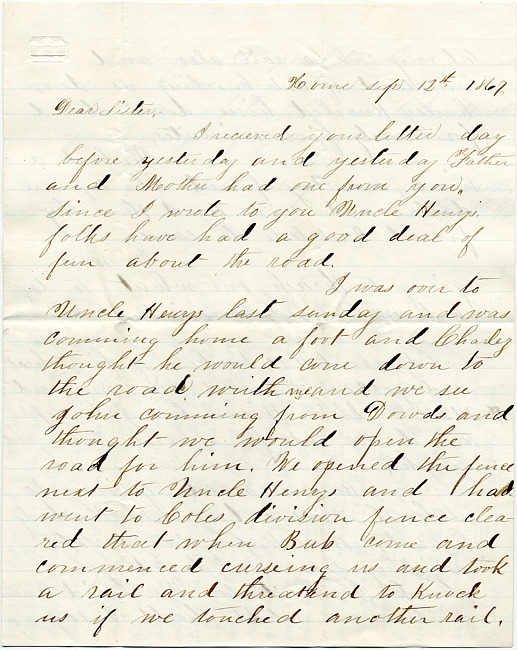 Home sep 12th 1867,
Dear Sister,
I recieved your letter day
before yesterday and yesterday Father
and Mother had one from you.
Since I wrote to you Uncle Henrys
folks have had a good deal of
fun about the road.
I was over to
Uncle Henrys last sunday and was
comming home a foot and Charley
thought he would come down to
the road with me and we see
John comming from Dowds and
thought we would open the
road for him. We opened the fence
next to Uncle Henrys and had
went to Coles division fence clea-
red that when Bub come and
commenced curseing us and took
a rail and threatend to Knock
us if we touched another rail.